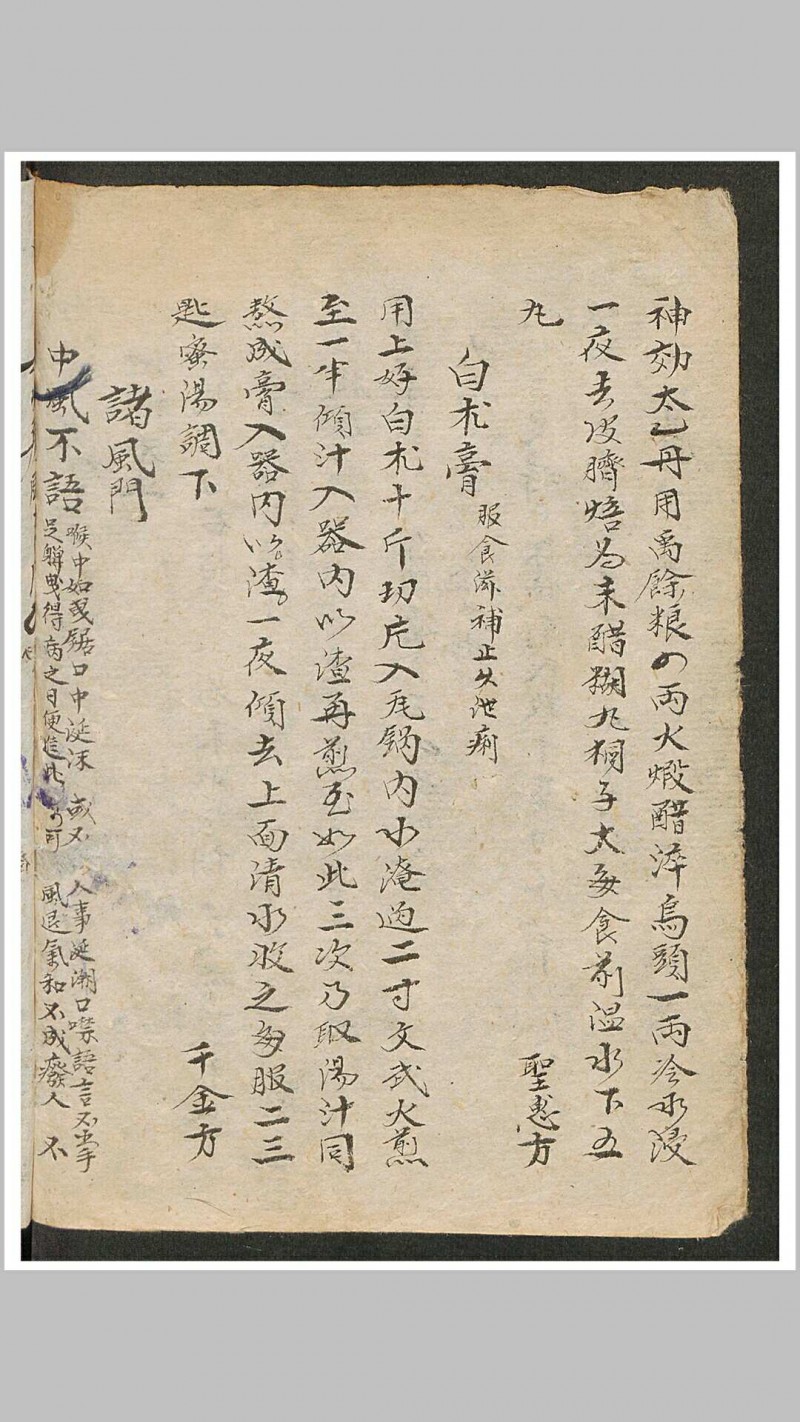 神効太乙丹用禹餘粮四両火煅醋淬烏頭一両冷水浸
一夜去皮臍焙為末醋糊丸桐子大每食前温水下五
丸 聖惠方
白朮膏 服食滋補止久泄痢
用上好白朮十斤切片入瓦锅内水淹過二寸文武火煎
至一半傾汁入器内以渣再煎至如此三次乃取湯汁同
熬成膏入器内以渣一夜傾去上面清水收之每服二三
匙蜜湯調下 千金方
諸風門
中風不語 喉中如曳鋸口中涎沫 或不 人事涎潮口噤語言不
足軃曳得病之日便進此 可 風退氣和不成癈人 不